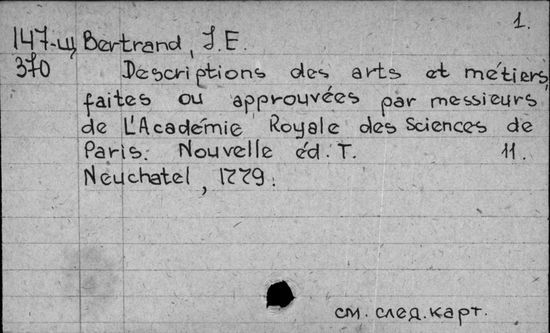 1.
147-щ Bertrand, J.E.
370 Descriptions des arts et métiers,
faites ou approuvées par messieurs
de L'Académie Royale des Sciences de
Paris. Nouvelle éd. T. 11.
Neuchatel, 1779.
см. след. карт.